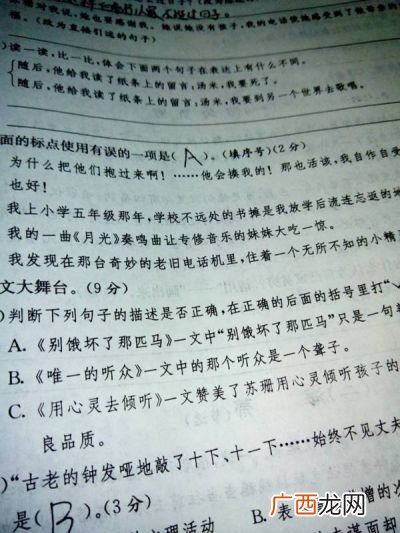 (改为直接引述的句子)
)读一读,比一比,体会下面两个句子在表达上有什么不同。
随后,他给我读了纸条上的留言:汤米,我要死了。
随后,他给我读了纸条上的留言:汤米,我要到另一个世界去歌唱。
面的标点使用有误的一项是( A )。(填序号)(2分)
为什么把他们抱过来啊!……他会揍我的!那也活该,我自作自受
也好!
我上小学五年级那年,学校不远处的书摊是我放学后流连忘返的地
我的一曲《月光》奏鸣曲让专修音乐的妹妹大吃一惊。
我发现在那台奇妙的老旧电话机里,住着一个无所不知的小精
文大舞台。(9分)
)判断下列句子的描述是否正确,在正确的后面的括号里打“
A.《别饿坏了那匹马》一文中“别饿坏了那匹马”只是一句
B.《唯一的听众》一文中的那个听众是一个聋子。
C.《用心灵去倾听》一文赞美了苏珊用心灵倾听孩子的
良品质。
)“古老的钟发哑地敲了十下、十一下……始终不见丈夫
是( B )。(3分)
心理活动 B.表